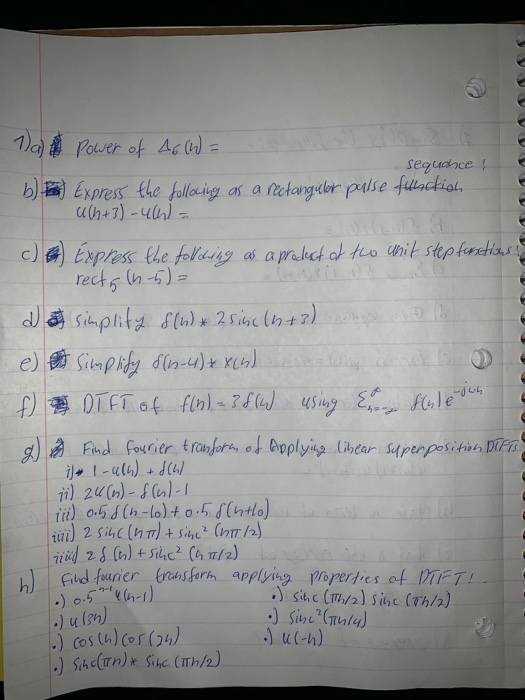 1) a) Power of Δ6(n) =
sequence!
b) Express the following as a rectangular pulse function
u(n+3) - u(n) =
c) Express the following as a product of two unit step functions!
rect5(n-5) =
d) simplify δ(n) * 2 sinc(n+3)
e) Simplify δ(n-4) * x(n)
f) DTFT of f(n) = 3δ(n) using Σ∞n=-∞ f(n)e-jωn
g) Find fourier transform of Applying linear superposition DTFTs
i) 1 - u(n) + δ(n)
ii) 2u(n) - δ(n) - 1
iii) 0.5 δ(n-10) + 0.5 δ(n+10)
iiii) 2 sinc(nπ) + sinc²(nπ/2)
iiiii) 2δ(n) + sinc²(nπ/2)
h) Find fourier transform applying properties of DTFT!
•) 0.5ⁿ⁻¹u(n-1) •) sinc(πn/2) sinc(πn/2)
•) u(3n) •) sinc²(πn/4)
•) cos(n)cos(2n) •) u(-n)
•) sinc(πn) * sinc(πn/2)